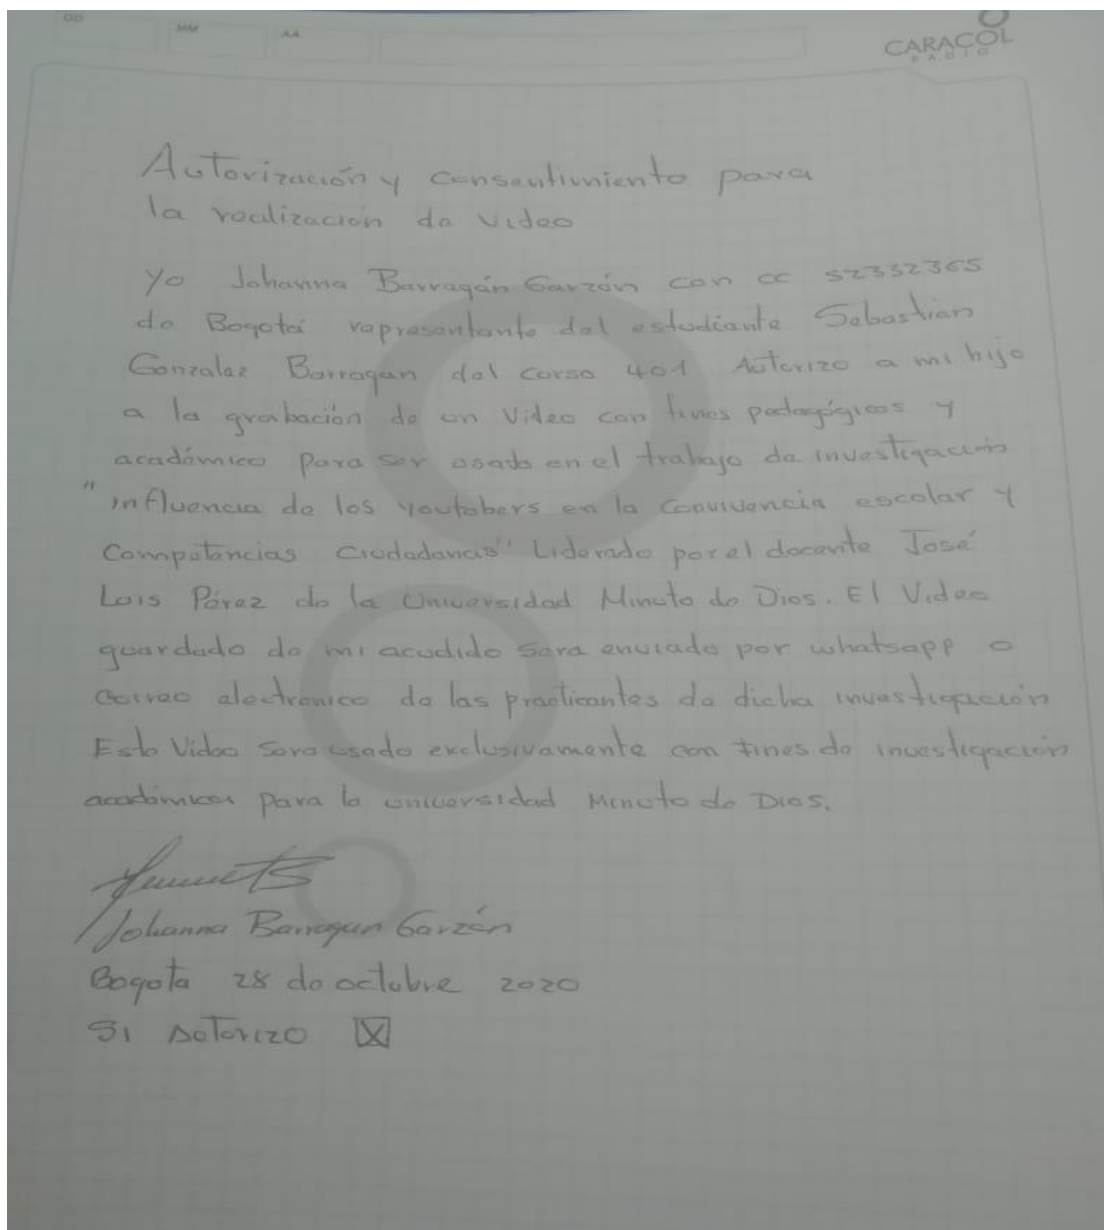 DD MM AA
CARACOL
RADIO
Autorización y consentimiento para
la realizacion de video
Yo Johanna Barragán Garzón con cc 52332365
de Bogotá representante del estudiante Sebastian
Gonzalez Barragan del curso 401 Autorizo a mi hijo
a la grabación de un Video con fines pedagógicos y
académico para ser usado en el trabajo de investigación
"influencia de los youtubers en la convivencia escolar y
Competencias Ciudadanas" Liderado por el docente José
Luis Pérez de la Universidad Minuto de Dios. El Video
guardado de mi acudido sera enviado por whatsapp o
correo electronico de las practicantes de dicha investigación
Este Video sera usado exclusivamente con fines de investigación
académicos para la universidad Minuto de Dios.
Johanna Barragan Garzón
Bogota 28 de octubre 2020
Si Autorizo X